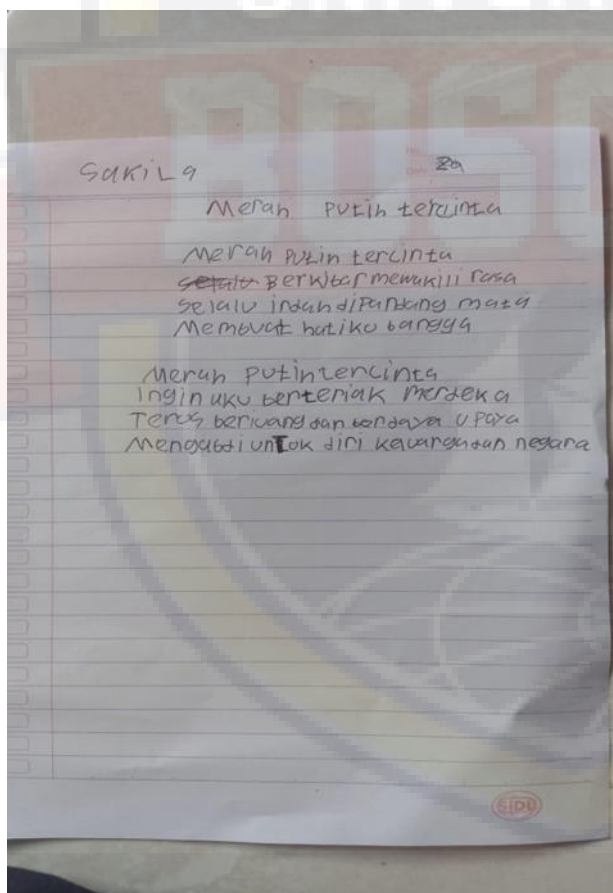 Sakila
Merah Putih tercinta
Merah Putih tercinta
Berkibar mewakili rasa
Selalu indah dipandang mata
Membuat hatiku bangga
Merah Putih tercinta
Ingin aku berteriak merdeka
Terus berjuang dan berdaya upaya
Mengabdi untok diri keluarga dan negara
SIDU